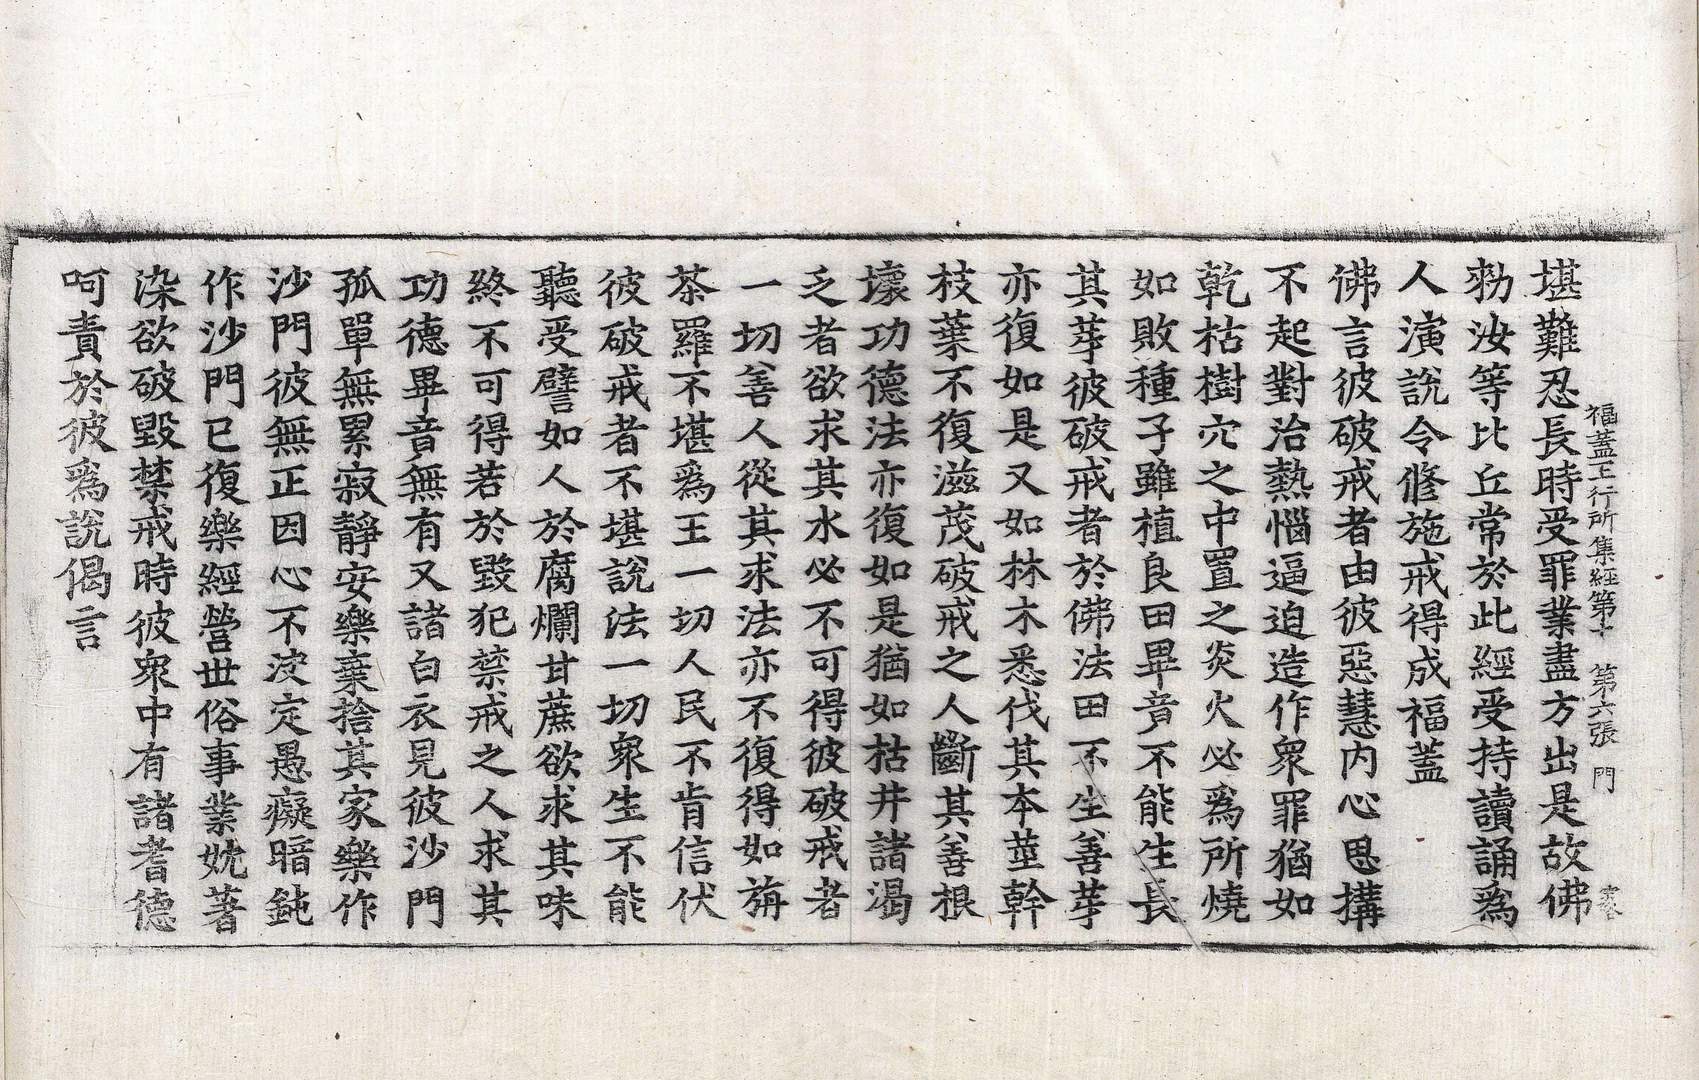 福蓋正行所集經第十 第六張 門
堪難忍長時受罪業盡方出是故佛
勑汝等比丘常於此經受持讀誦爲
人演說令修施戒得成福蓋
佛言彼破戒者由彼惡慧內心思搆
不起對治熱惱逼迫造作衆罪猶如
乾枯樹穴之中置之炎火必爲所燒
如敗種子雖植良田畢竟不能生長
其芽彼破戒者於佛法田不生善芽
亦復如是又如林木悉伐其本莖幹
枝葉不復滋茂破戒之人斷其善根
壞功德法亦復如是猶如枯井諸渴
乏者欲求其水必不可得彼破戒者
一切善人從其求法亦不復得如旃
茶羅不堪爲王一切人民不肯信伏
彼破戒者不堪說法一切衆生不能
聽受譬如人於腐爛甘蔗欲求其味
終不可得若於毀犯禁戒之人求其
功德畢竟無有又諸白衣見彼沙門
孤單無累寂靜安樂棄捨其家樂作
沙門彼無正因心不決定愚癡暗鈍
作沙門已復樂經營世俗事業妉著
染欲破毀禁戒時彼衆中有諸耆德
呵責於彼爲說偈言